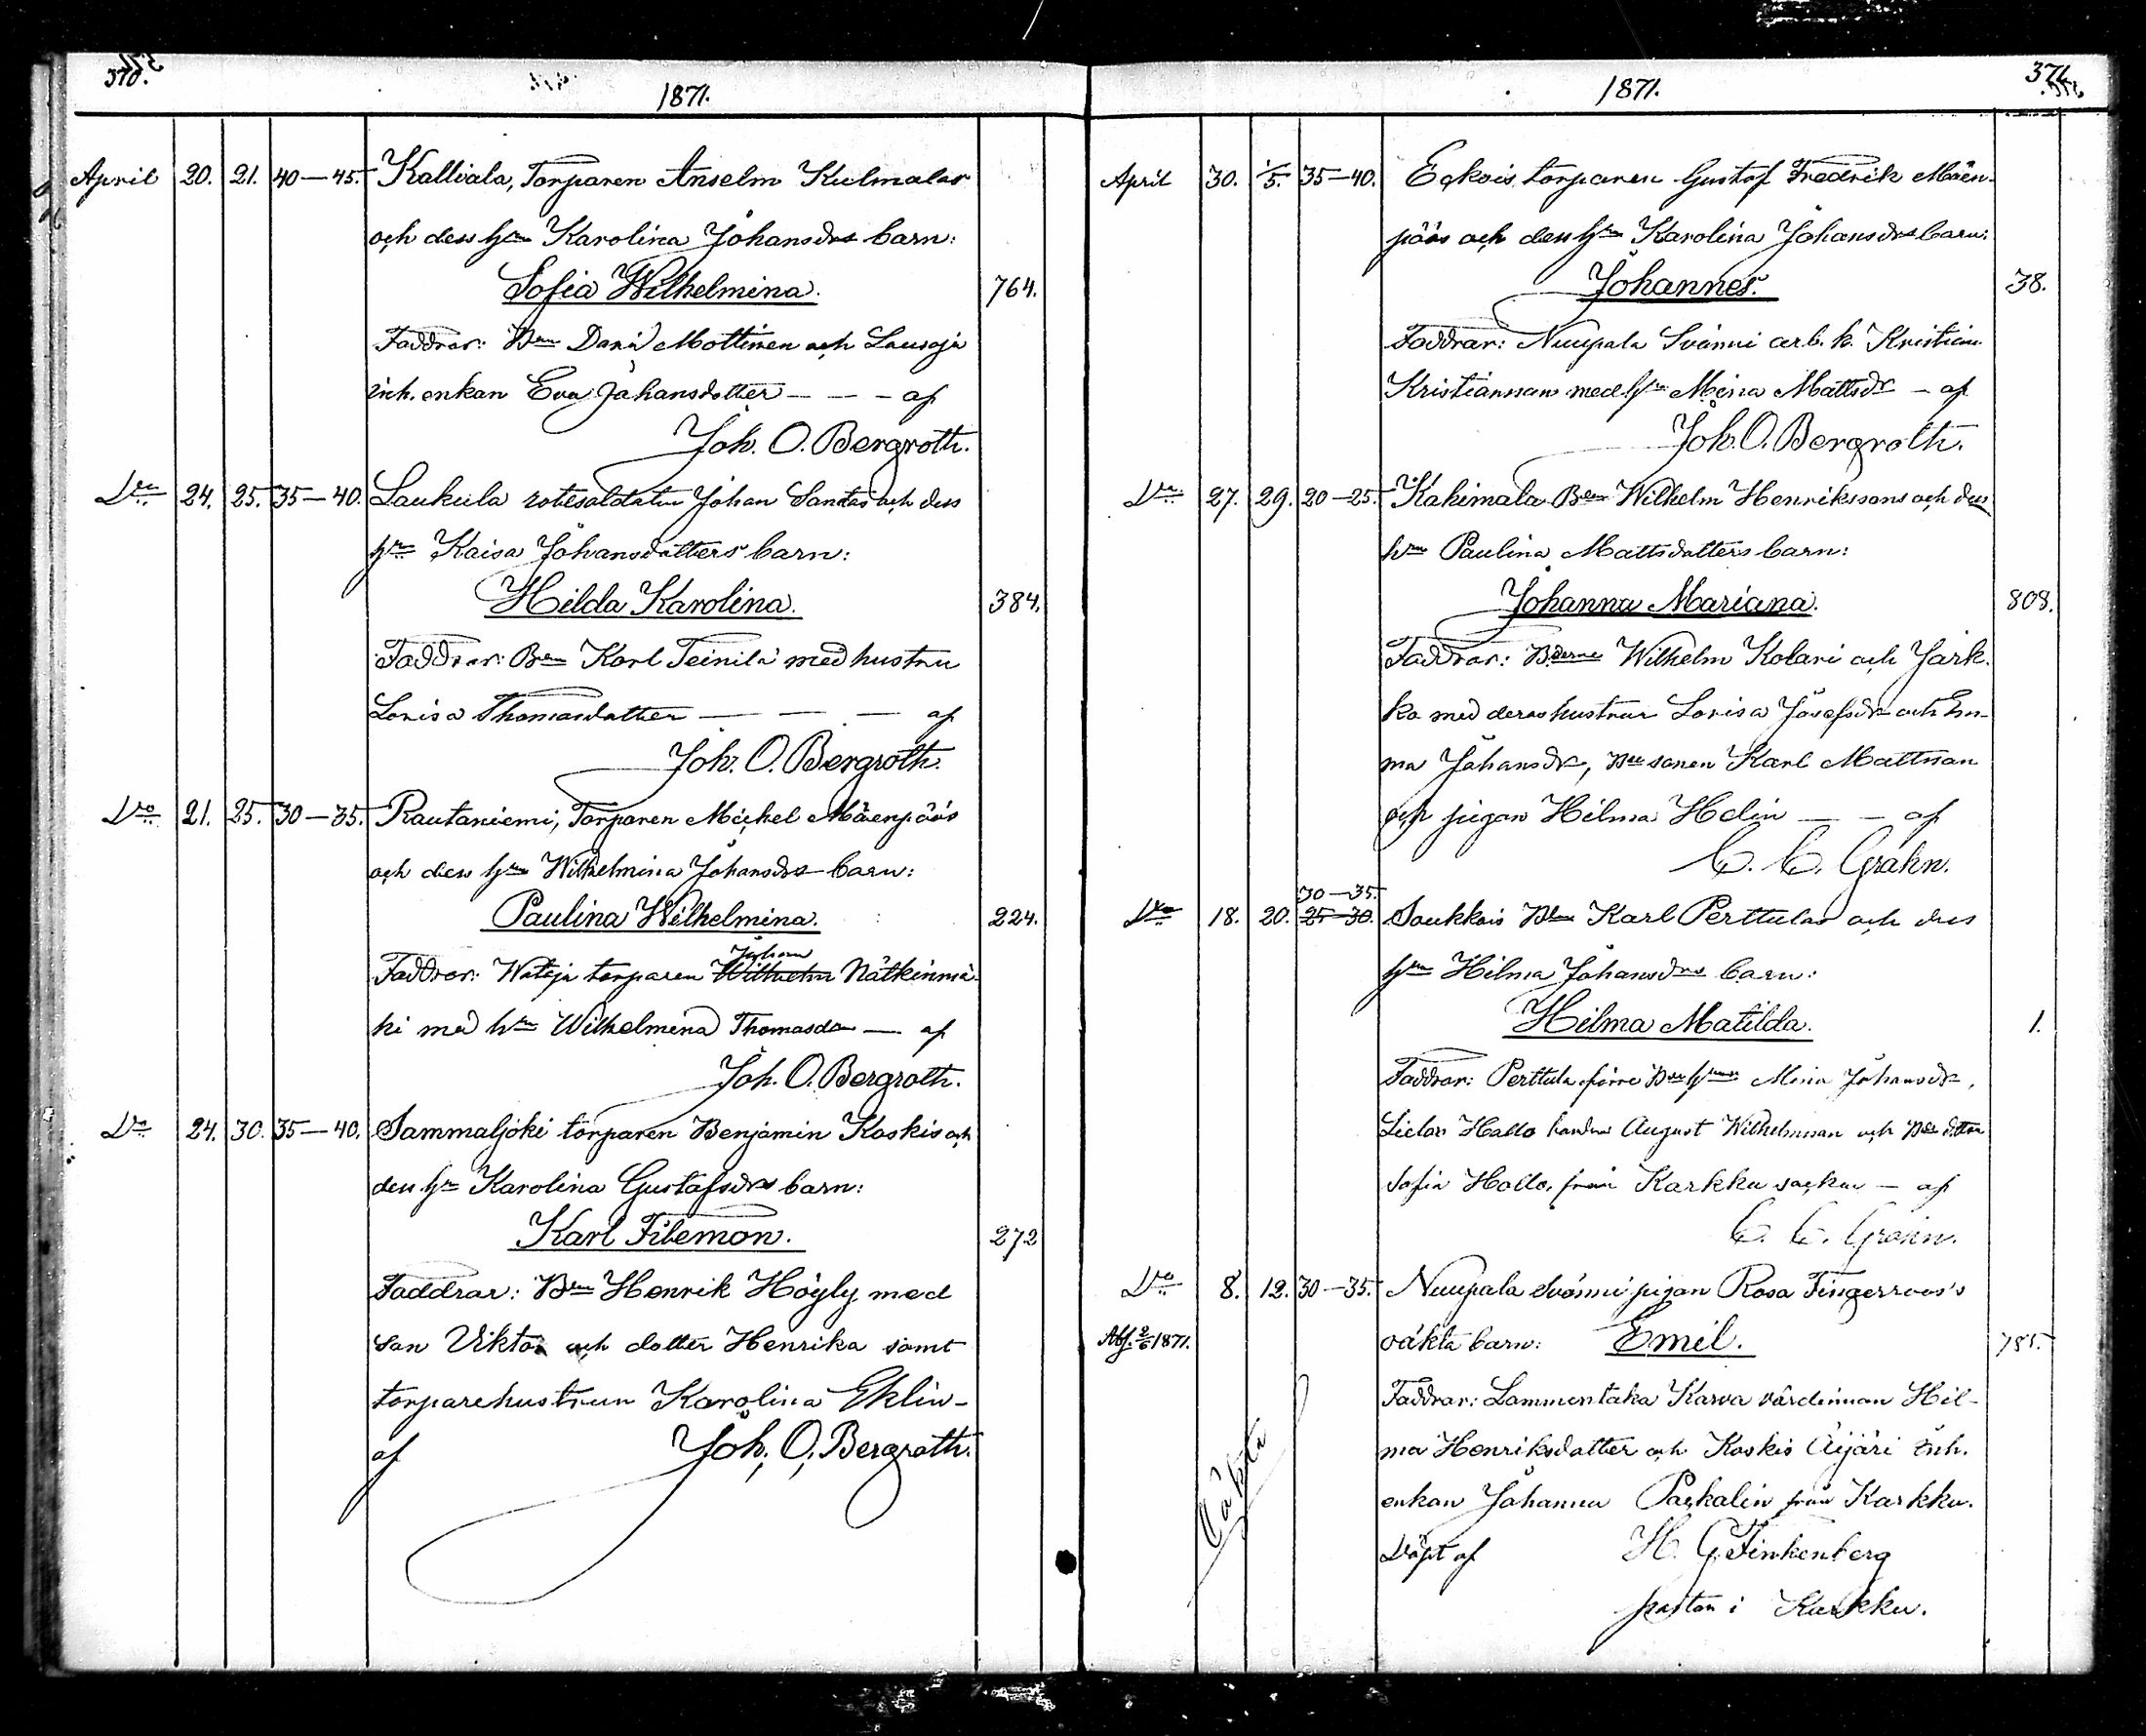 370.
1871.
April 20. 21. 40—45. Kallviala, Torparen Anselm Kulmalas
och dess Hru Karolina Johansdrs barn:
Sofia Wilhelmina. 764.
Faddrar: Bdn Mottinen och Sausaja
inh. enkan Eva Johansdotter — — — af
Joh. O. Bergroth.
Do 24. 25. 35—40. Laukula rotesoldaten Johan Santas och dess
hru Kaisa Johansdotters barn:
Hilda Karolina. 384.
Faddrar: Bdn Karl Teinilä med hustru
Lovisa Thomasdotter — — — af
Joh. O. Bergroth.
Do 21. 25. 30—35. Rautaniemi, Torparen Michel Mäenpääs
och dess hru Wilhelmina Johansdrs barn:
Paulina Wilhelmina. 224.
Johan
Faddrar: torparen Wilhelm Nätkinmä-
ki med hru Wilhelmina Thomasdr — af
Joh. O. Bergroth.
Do 24. 30. 35—40. Sammaljoki torparen Benjamin Koskis och
dess hru Karolina Gustafsdrs barn:
Karl Filemon. 272
Faddrar: Bdn Henrik Höyly med
son Viktor och dotter Henrika samt
torparehustrun Karolina Eklin-
af Joh. O. Bergroth.
371.
1871.
April 30. 1/5. 35—40. Eckois torparen Gustaf Fredrik Mäen-
pääs och dess hru Karolina Johansdrs barn:
Johannes. 38.
Faddrar: Nuupala Svänni arb. k. Kristian
Kristiansson med hru Mina Mattsdr — af
Joh. O. Bergroth.
Do 27. 29. 20—25. Kakimala Bdn Wilhelm Henrikssons och dess
hru Paulina Mattsdotters barn:
Johanna Mariana. 808.
Faddrar: Bderne Wilhelm Kolari och Järk-
ko med deras hustrur Lovisa Josefsdr och Em-
ma Johansdr, Bdesonen Karl Mattsson
och pigan Hilma Helin — — af
C. C. Grahn.
30—35.
Do 18. 20. 25—30. Soukkois Bdn Karl Perttulas och dess
hru Hilma Johansdrs barn:
Hilma Matilda. 1.
Faddrar: Perttula förre Bde hrun Mina Johansdr,
Hollo August Wilhelmsson och Bde dottren
Sofia Hollo, från Karkku socken — af
C. C. Grahn.
Do 8. 12. 30—35. Nuupala Svänni pigan Rosa Fingerroos's
Abf. 2/6 1871. oäkta barn: Emil. 785.
Faddrar: Lammentaka Karva värdinnan Hil-
ma Henriksdotter och Koskis Äijäri inh.
enkan Johanna Paskalin från Karkku.
Oäkta
Döpt af H. G. Finkenberg
pastor i Karkku.